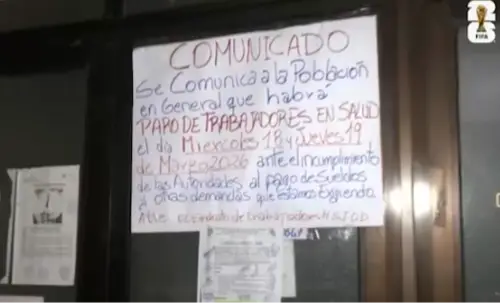 COMUNICADO
Se Comunica a la Población
en General que habrá
PARO DE TRABAJADORES EN SALUD
el día Miercoles 18 y Jueves 19
de Marzo 2026 ante el incumplimiento
de las Autoridades al pago de Sueldos
y otras demandas que estamos Exigiendo.
Atte. de trabajadores H.S.J.D.D
FIFA